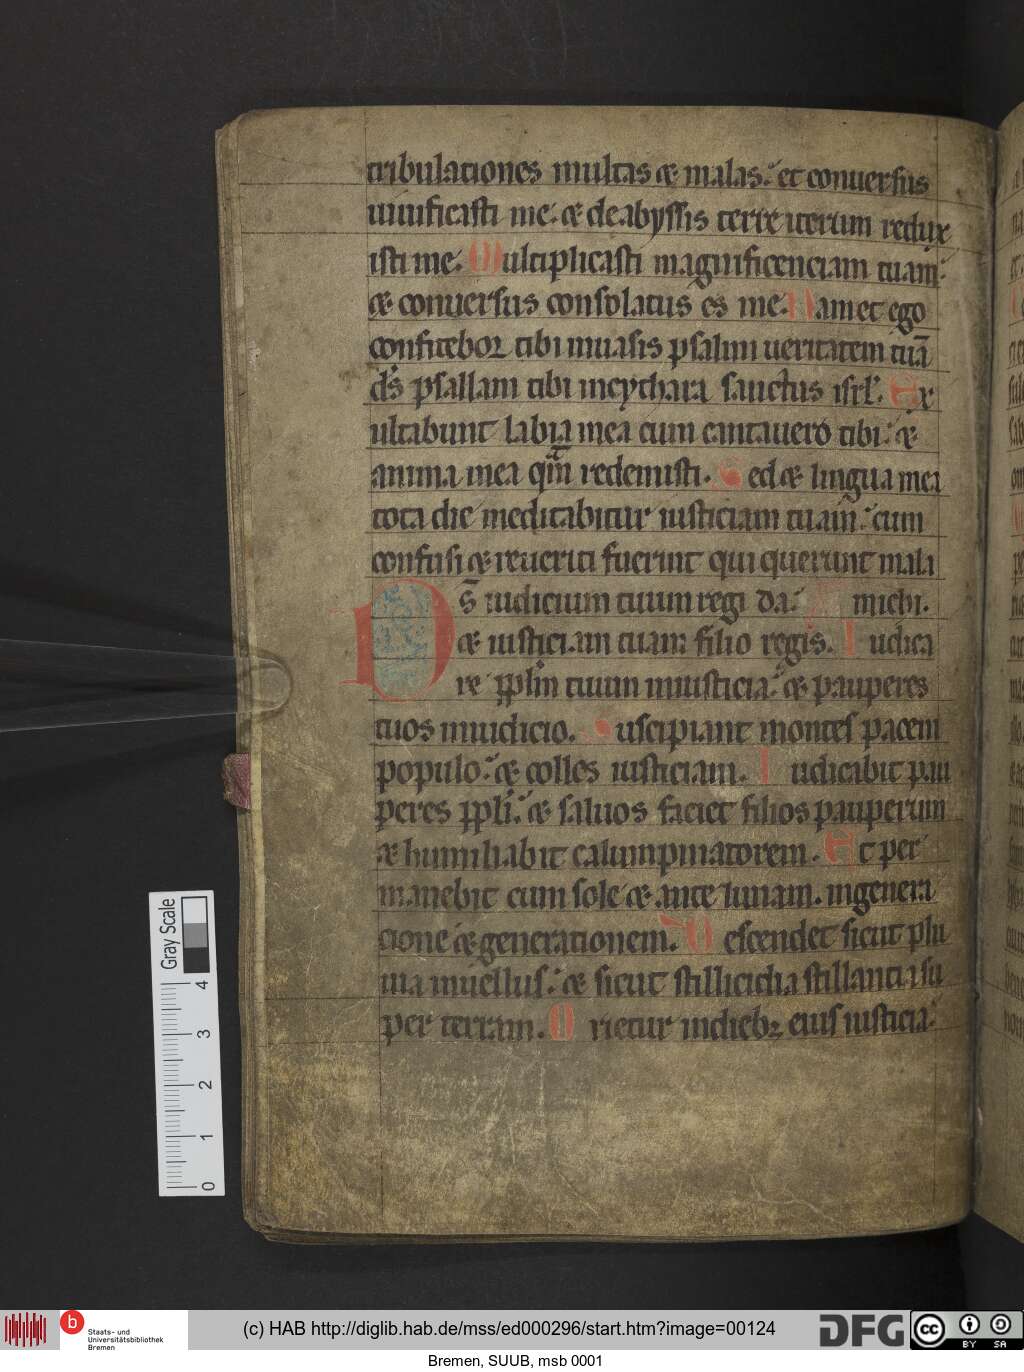 tribulationes multas & malas. et conuersus
uiuificasti me. & deabyssis terre iterum redux
isti me. Multiplicasti magnificenciam tuam.
& conuersus consolatus es me. Nam et ego
confitebor tibi inuasis psalmi ueritatem tuā
ds psallam tibi incythara sanctus isrl. Ex
ultabunt labia mea cum cantauero tibi. &
anima mea qm redemisti. Sed & lingua mea
tota die meditabitur iusticiam tuam. cum
confusi & reueriti fuerint qui querunt mala
Ds iudicium tuum regi da. michi.
& iusticiam tuam filio regis. Iudica
re pplm tuum iniusticia. & pauperes
tuos iniudicio. Suscipiant montes pacem
populo. & colles iusticiam. Iudicabit pau
peres ppli. & saluos faciet filios pauperum
& humiliabit calumpniatorem. Et per
manebit cum sole & ante lunam. ingenera
cione & generationem. Descendet sicut plu
uia inuellus. & sicut stillicidia stillantia su
per terram. Orietur indiebz eius iusticia.
Gray Scale
4
3
2
1
0
b
Staats- und
Universitätsbibliothek
Bremen
(c) HAB http://diglib.hab.de/mss/ed000296/start.htm?image=00124
DFG
cc
BY SA
Bremen, SUUB, msb 0001